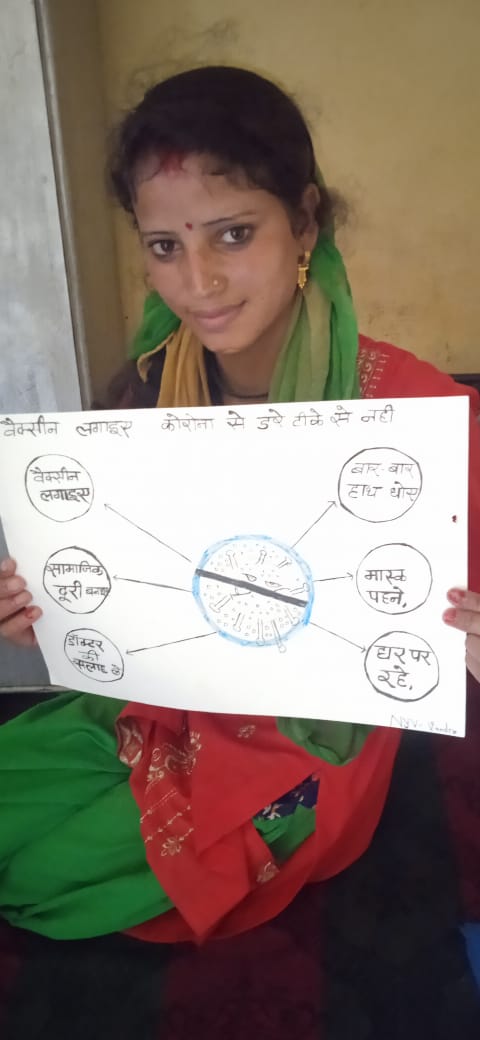 वैक्सीन लगाइए कोरोना से डरे टीके से नही
वैक्सीन
लगाइए
बार-बार
हाथ धोए
सामाजिक
दूरी बनाए
मास्क
पहने,
डॉक्टर
की
सलाह ले
घर पर
रहे,